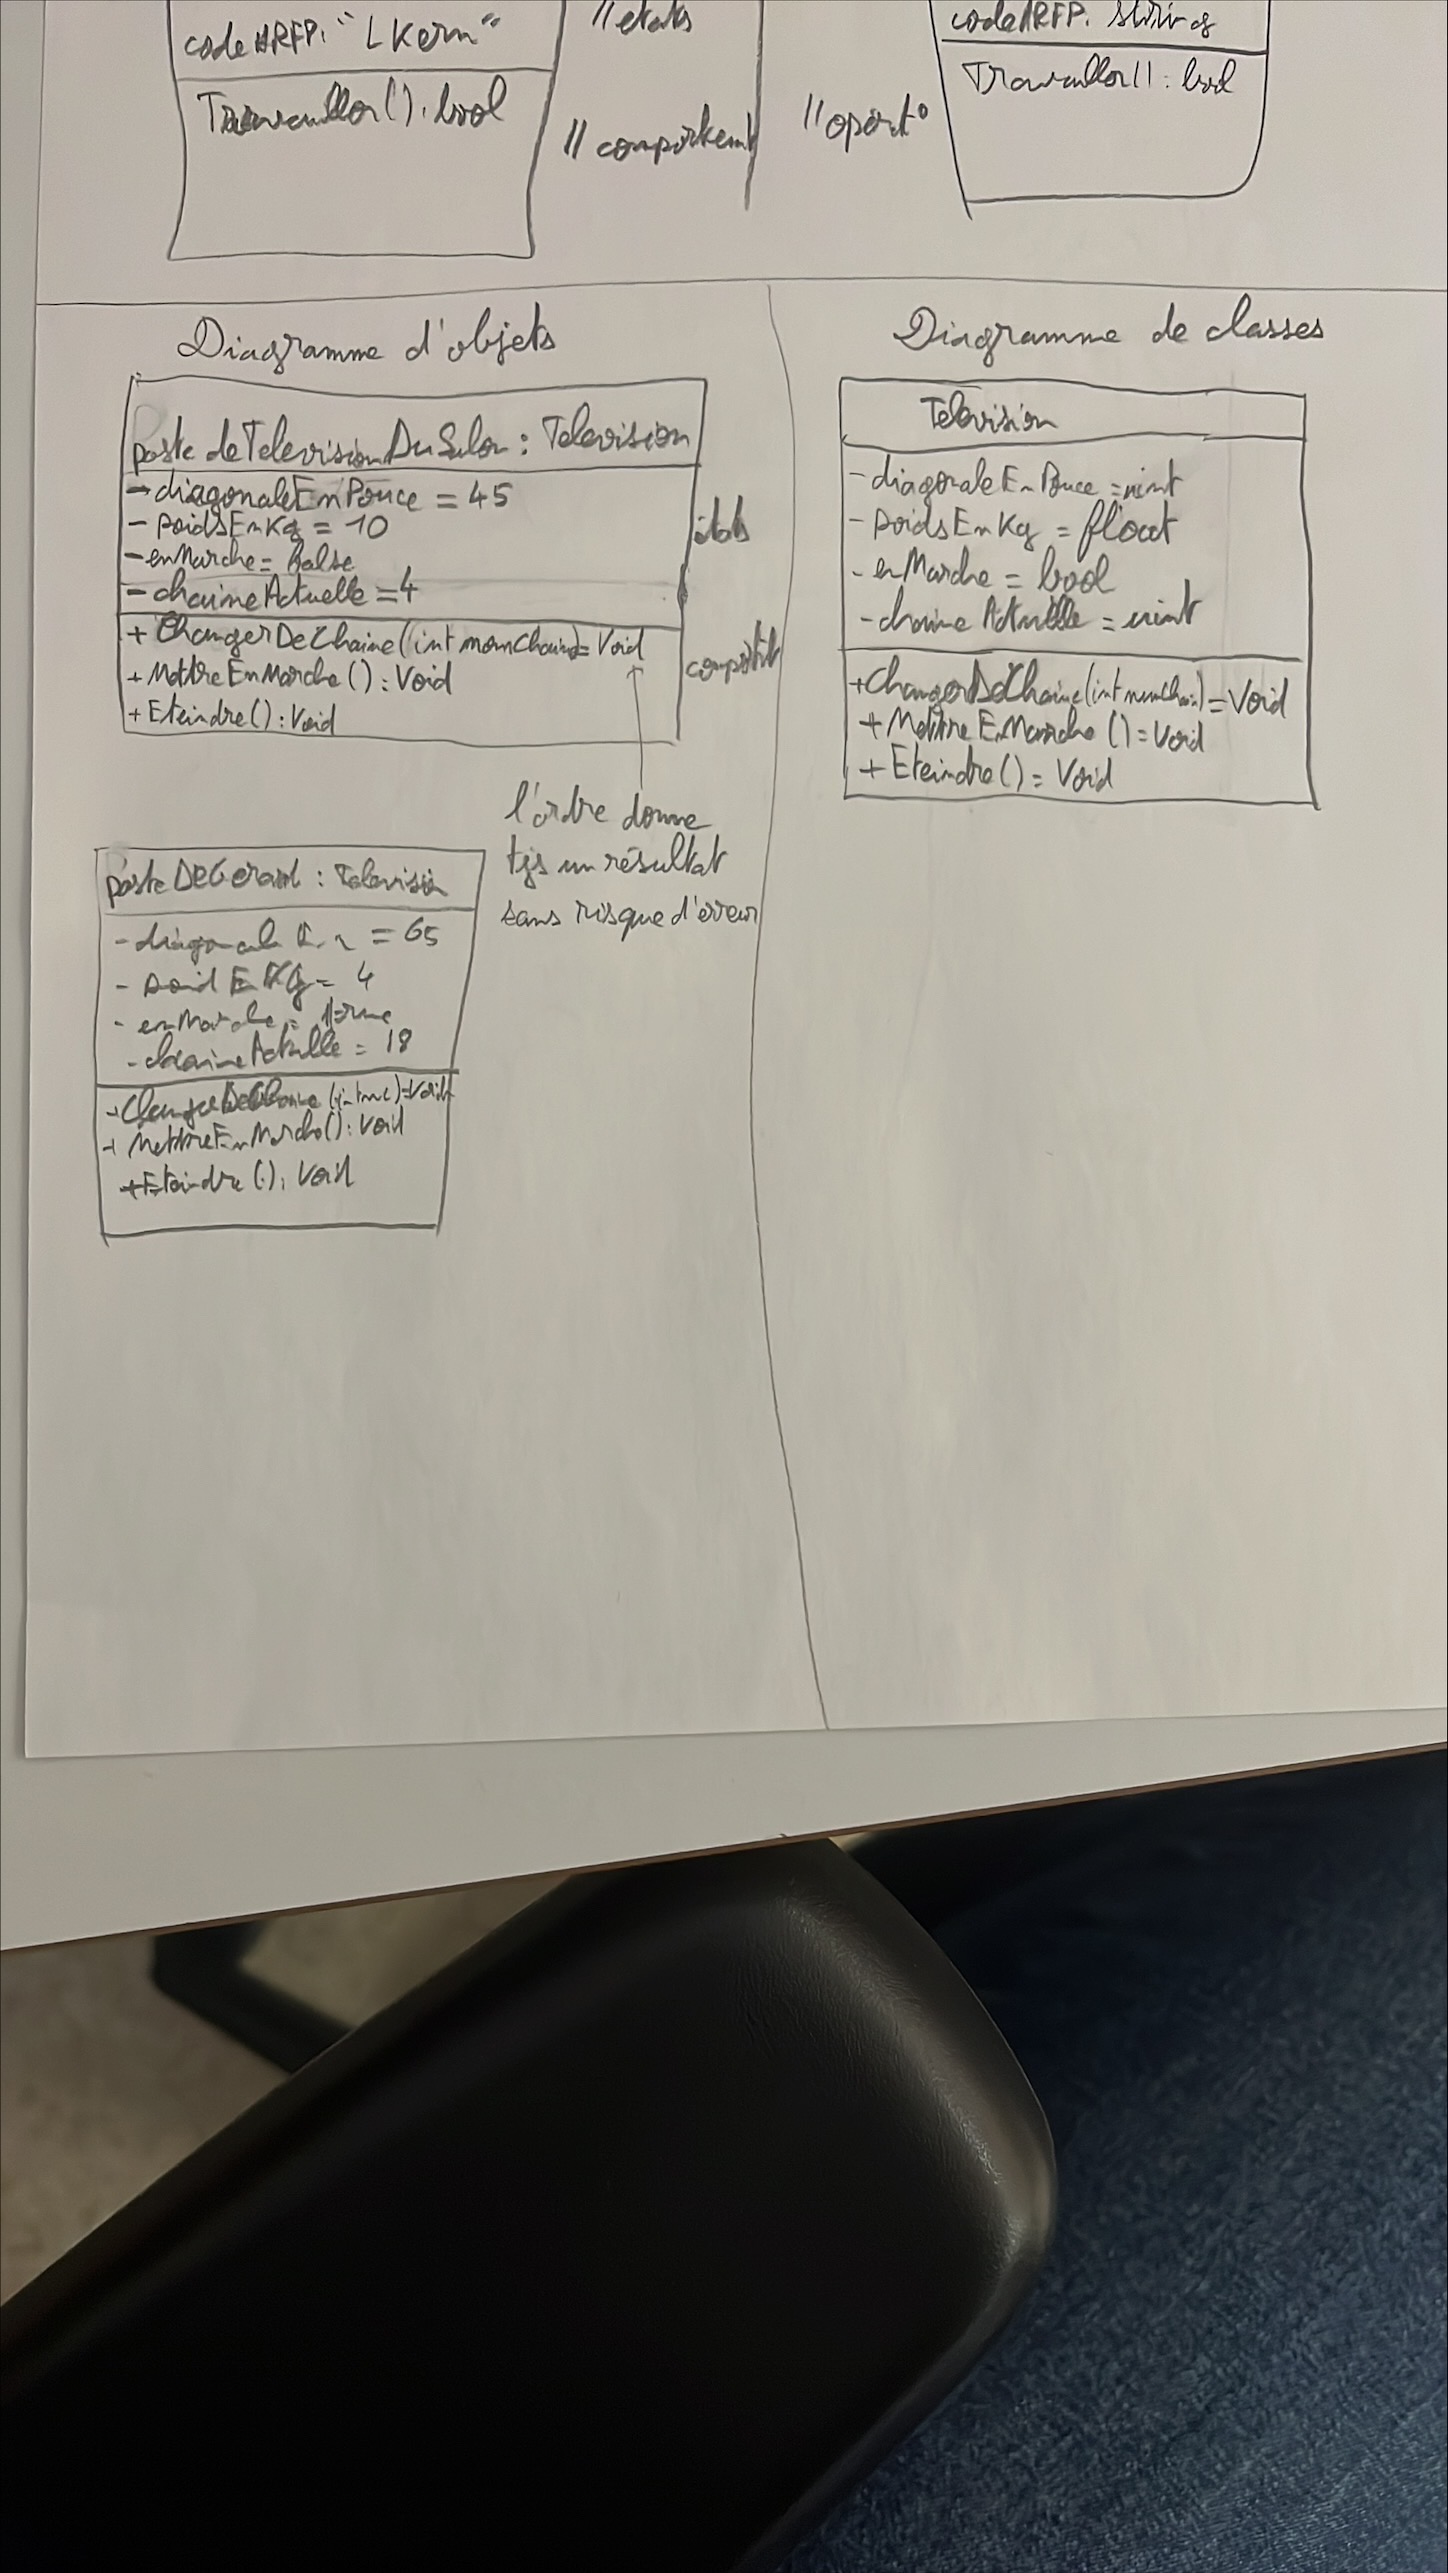 codeARFP: "LKern"
Travailler(): bool
//etats
//comportemt
codeARFP: string
Travailler(): bool
//opért°
Diagramme d'objets
poste deTelevisionDuSalon: Television
- diagonaleEnPouce = 45
- poidsEnKg = 10
- enMarche = false
- chaineActuelle = 4
+ ChangerDeChaine(int numChaine)= Void
+ MettreEnMarche(): Void
+ Eteindre(): Void
états
l'ordre donne
tjs un résultat
sans risque d'erreur
posteDeGerard: Television
- diagonale = 65
- poidEnKg = 4
- enMarche = true
- chaineActuelle = 18
+ ChangerDeChaine = Void
+ MettreEnMarche(): Void
+ Eteindre(): Void
Diagramme de classes
Television
- diagonaleEnPouce = uint
- poidsEnKg = float
- enMarche = bool
- chaineActuelle = uint
+ ChangerDeChaine(int numChain) = Void
+ MettreEnMarche() = Void
+ Eteindre() = Void